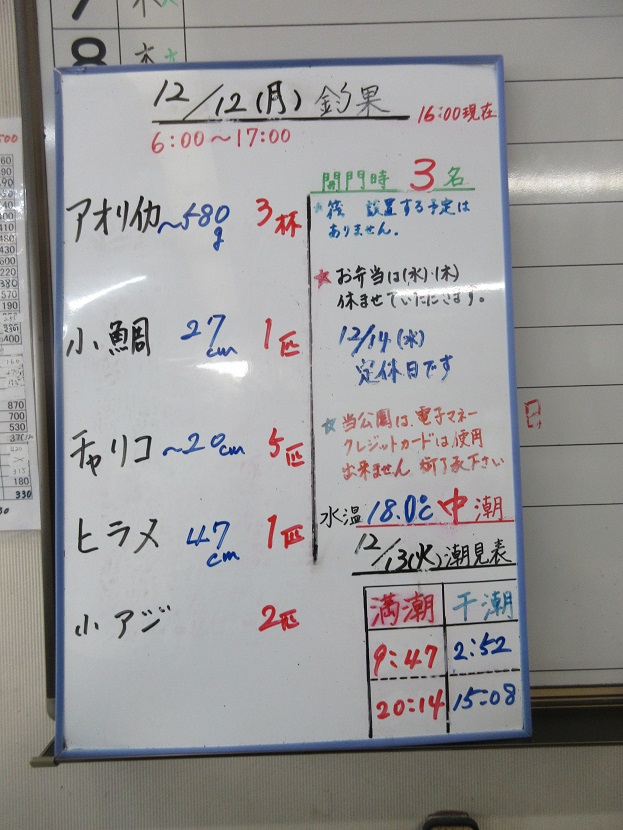 12/12(月) 釣果
16:00現在
6:00〜17:00
アオリイカ 〜580g 3杯
小鯛 27cm 1匹
チャリコ 〜20cm 5匹
ヒラメ 47cm 1匹
小アジ 2匹
開門時 3名
筏 設置する予定は
ありません。
★お弁当は(水)・(木)
休ませていただきます。
12/14(水)
定休日です
☆当公園は、電子マネー
クレジットカードは使用
出来ません 御了承下さい
水温 18.0℃ 中潮
12/13(火)潮見表
満潮 干潮
9:47 2:52
20:14 15:08